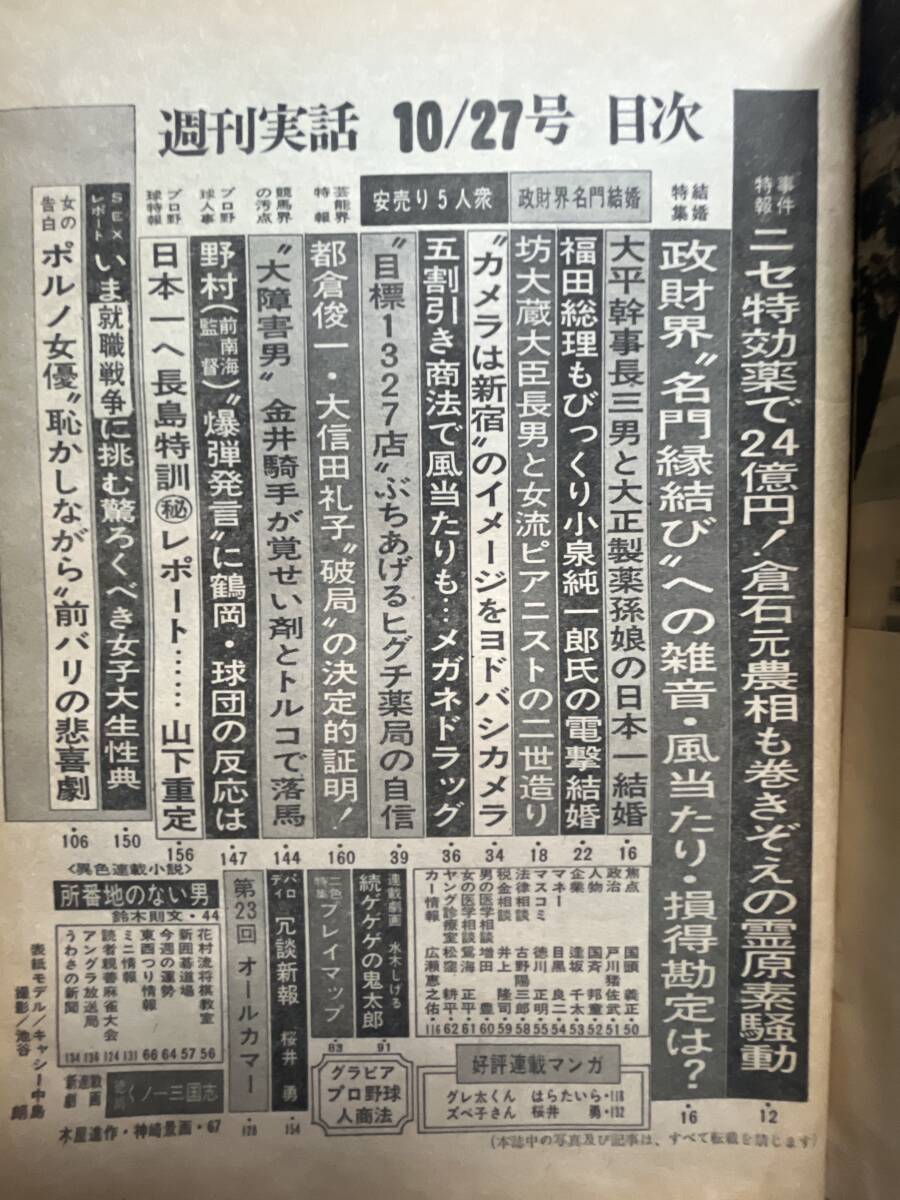 週刊実話 10/27号 目次
事件特報
ニセ特効薬で24億円!倉石元農相も巻きぞえの霊原素騒動
・12
結婚特集
政財界〝名門縁結び〟への雑音・風当たり・損得勘定は?
・16
政財界名門結婚
大平幹事長三男と大正製薬孫娘の日本一結婚
・16
福田総理もびっくり小泉純一郎氏の電撃結婚
・22
坊大蔵大臣長男と女流ピアニストの二世造り
・18
安売り5人衆
〝カメラは新宿〟のイメージをヨドバシカメラ
・34
五割引き商法で風当たりも…メガネドラッグ
・36
〝目標1327店〟ぶちあげるヒグチ薬局の自信
・39
芸能界特報
都倉俊一・大信田礼子〝破局〟の決定的証明!
・160
競馬界の汚点
〝大障害男〟金井騎手が覚せい剤とトルコで落馬
・144
プロ野球人事
野村(前南海監督)〝爆弾発言〟に鶴岡・球団の反応は
・147
プロ野球特報
日本一へ長島特訓㊙レポート……山下重定
・156
SEXレポート
いま就職戦争に挑む驚ろくべき女子大生性典
・150
女の告白
ポルノ女優〝恥かしながら〟前バリの悲喜劇
・106
焦点 国頭 義正 50
政治 戸川猪佐武 51
人物 国斉 邦童 52
企業 逢坂 千太 53
マネー 目黒 良二 54
マスコミ 徳川 正明 55
法律相談 古野陽三郎 58
税金相談 井上 隆司 59
男の医学相談 増田 豊 60
女の医学相談 鴛海 豊 61
ヤング診療室 松窪 耕平 62
カー情報 広瀬恵之佑 116
連載劇画 水木しげる
続ゲゲゲの鬼太郎
・91
二色特集
プレイマップ
・83
パロディ
冗談新報 桜井 勇
・154
第23回 オールカマー
・128
〈異色連載小説〉
所番地のない男
鈴木則文・44
花村流将棋教室 56
新囲碁道場 57
今週の運勢 64
東西つり情報 66
ミニ情報 131
読者親善麻雀大会 124
アングラ放送局 136
うわさの新聞 134
新連載劇画
くノ一三国志
木屋進作・神崎景画・67
グラビア
プロ野球
人商法
好評連載マンガ
グレ太くん はらたいら・118
ズベ子さん 桜井 勇・132
表紙モデル/キャシー中島
撮影/池谷 朗
(本誌中の写真及び記事は、すべて転載を禁じます)